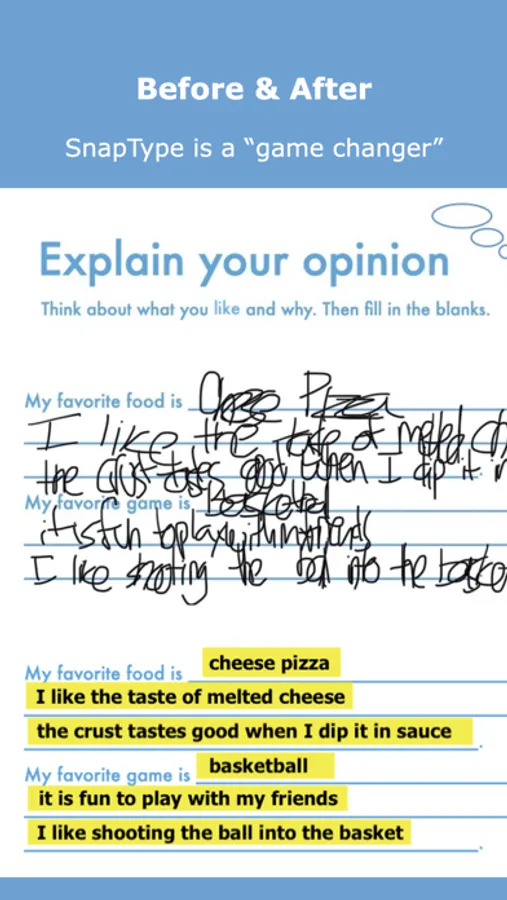 Before & After
SnapType is a “game changer”
Explain your opinion
Think about what you like and why. Then fill in the blanks.
My favorite food is Cheese Pizza
I like the taste of melted ch
the crust tastes good when I dip it in
My favorite game is Basketball
it is fun to play with my friends
I like shooting the ball into the baske
My favorite food is cheese pizza
I like the taste of melted cheese
the crust tastes good when I dip it in sauce.
My favorite game is basketball
it is fun to play with my friends
I like shooting the ball into the basket.